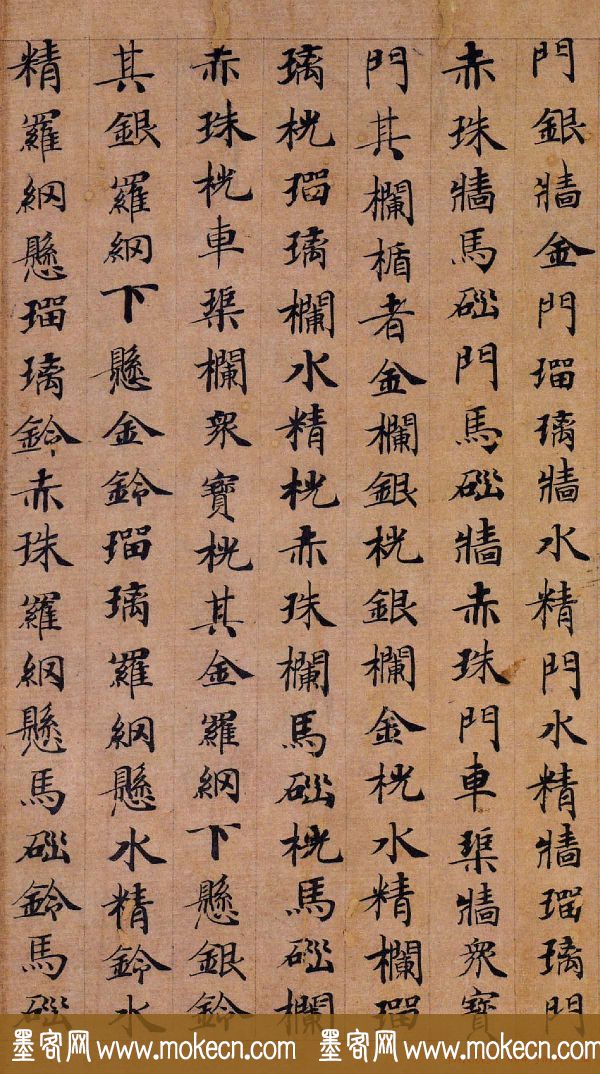 門銀牆金門瑠璃牆水精門水精牆瑠璃門
赤珠牆馬碯門馬碯牆赤珠門車𤦲牆眾寶
門其欄楯者金欄銀桄銀欄金桄水精欄瑠
璃桄瑠璃欄水精桄赤珠欄馬碯桄馬碯欄
赤珠桄車𤦲欄眾寶桄其金羅網下懸銀鈴
其銀羅網下懸金鈴瑠璃羅網懸水精鈴水
精羅網懸瑠璃鈴赤珠羅網懸馬碯鈴馬碯
墨客网 www.mokecn.com 墨客网 www.mokecn.com